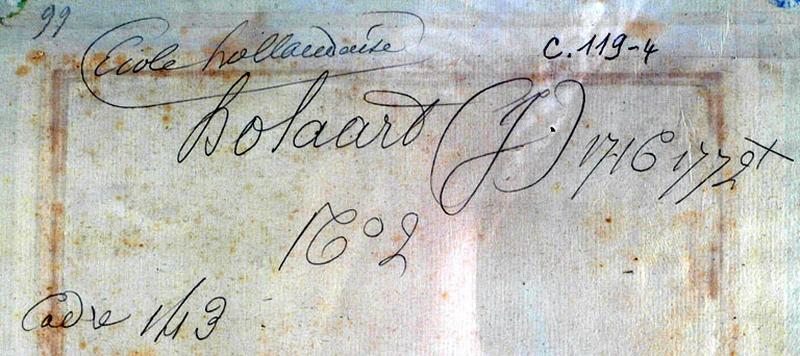 99
Ecole hollandaise
C. 119-4
Lolaart (J.) 1716 1772
No 2
Cadre 1113